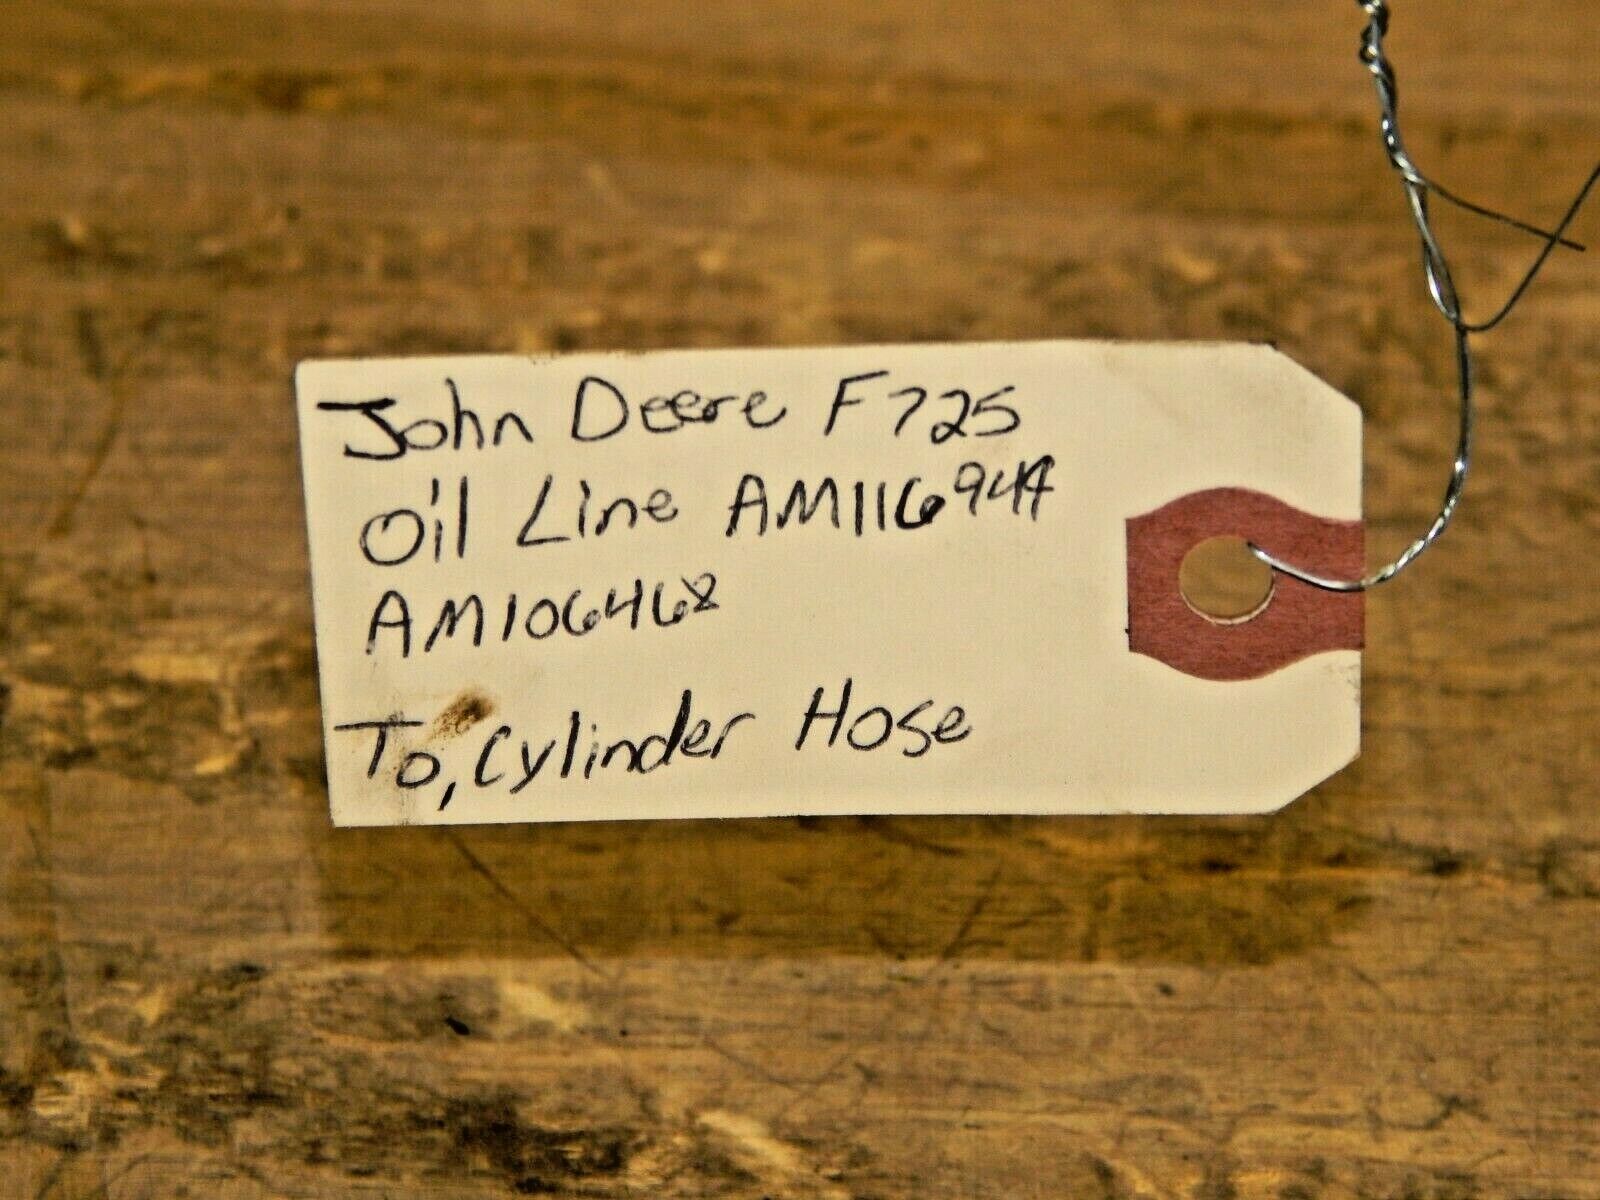 John Deere F725
Oil Line AM116944
AM106468
To, Cylinder Hose